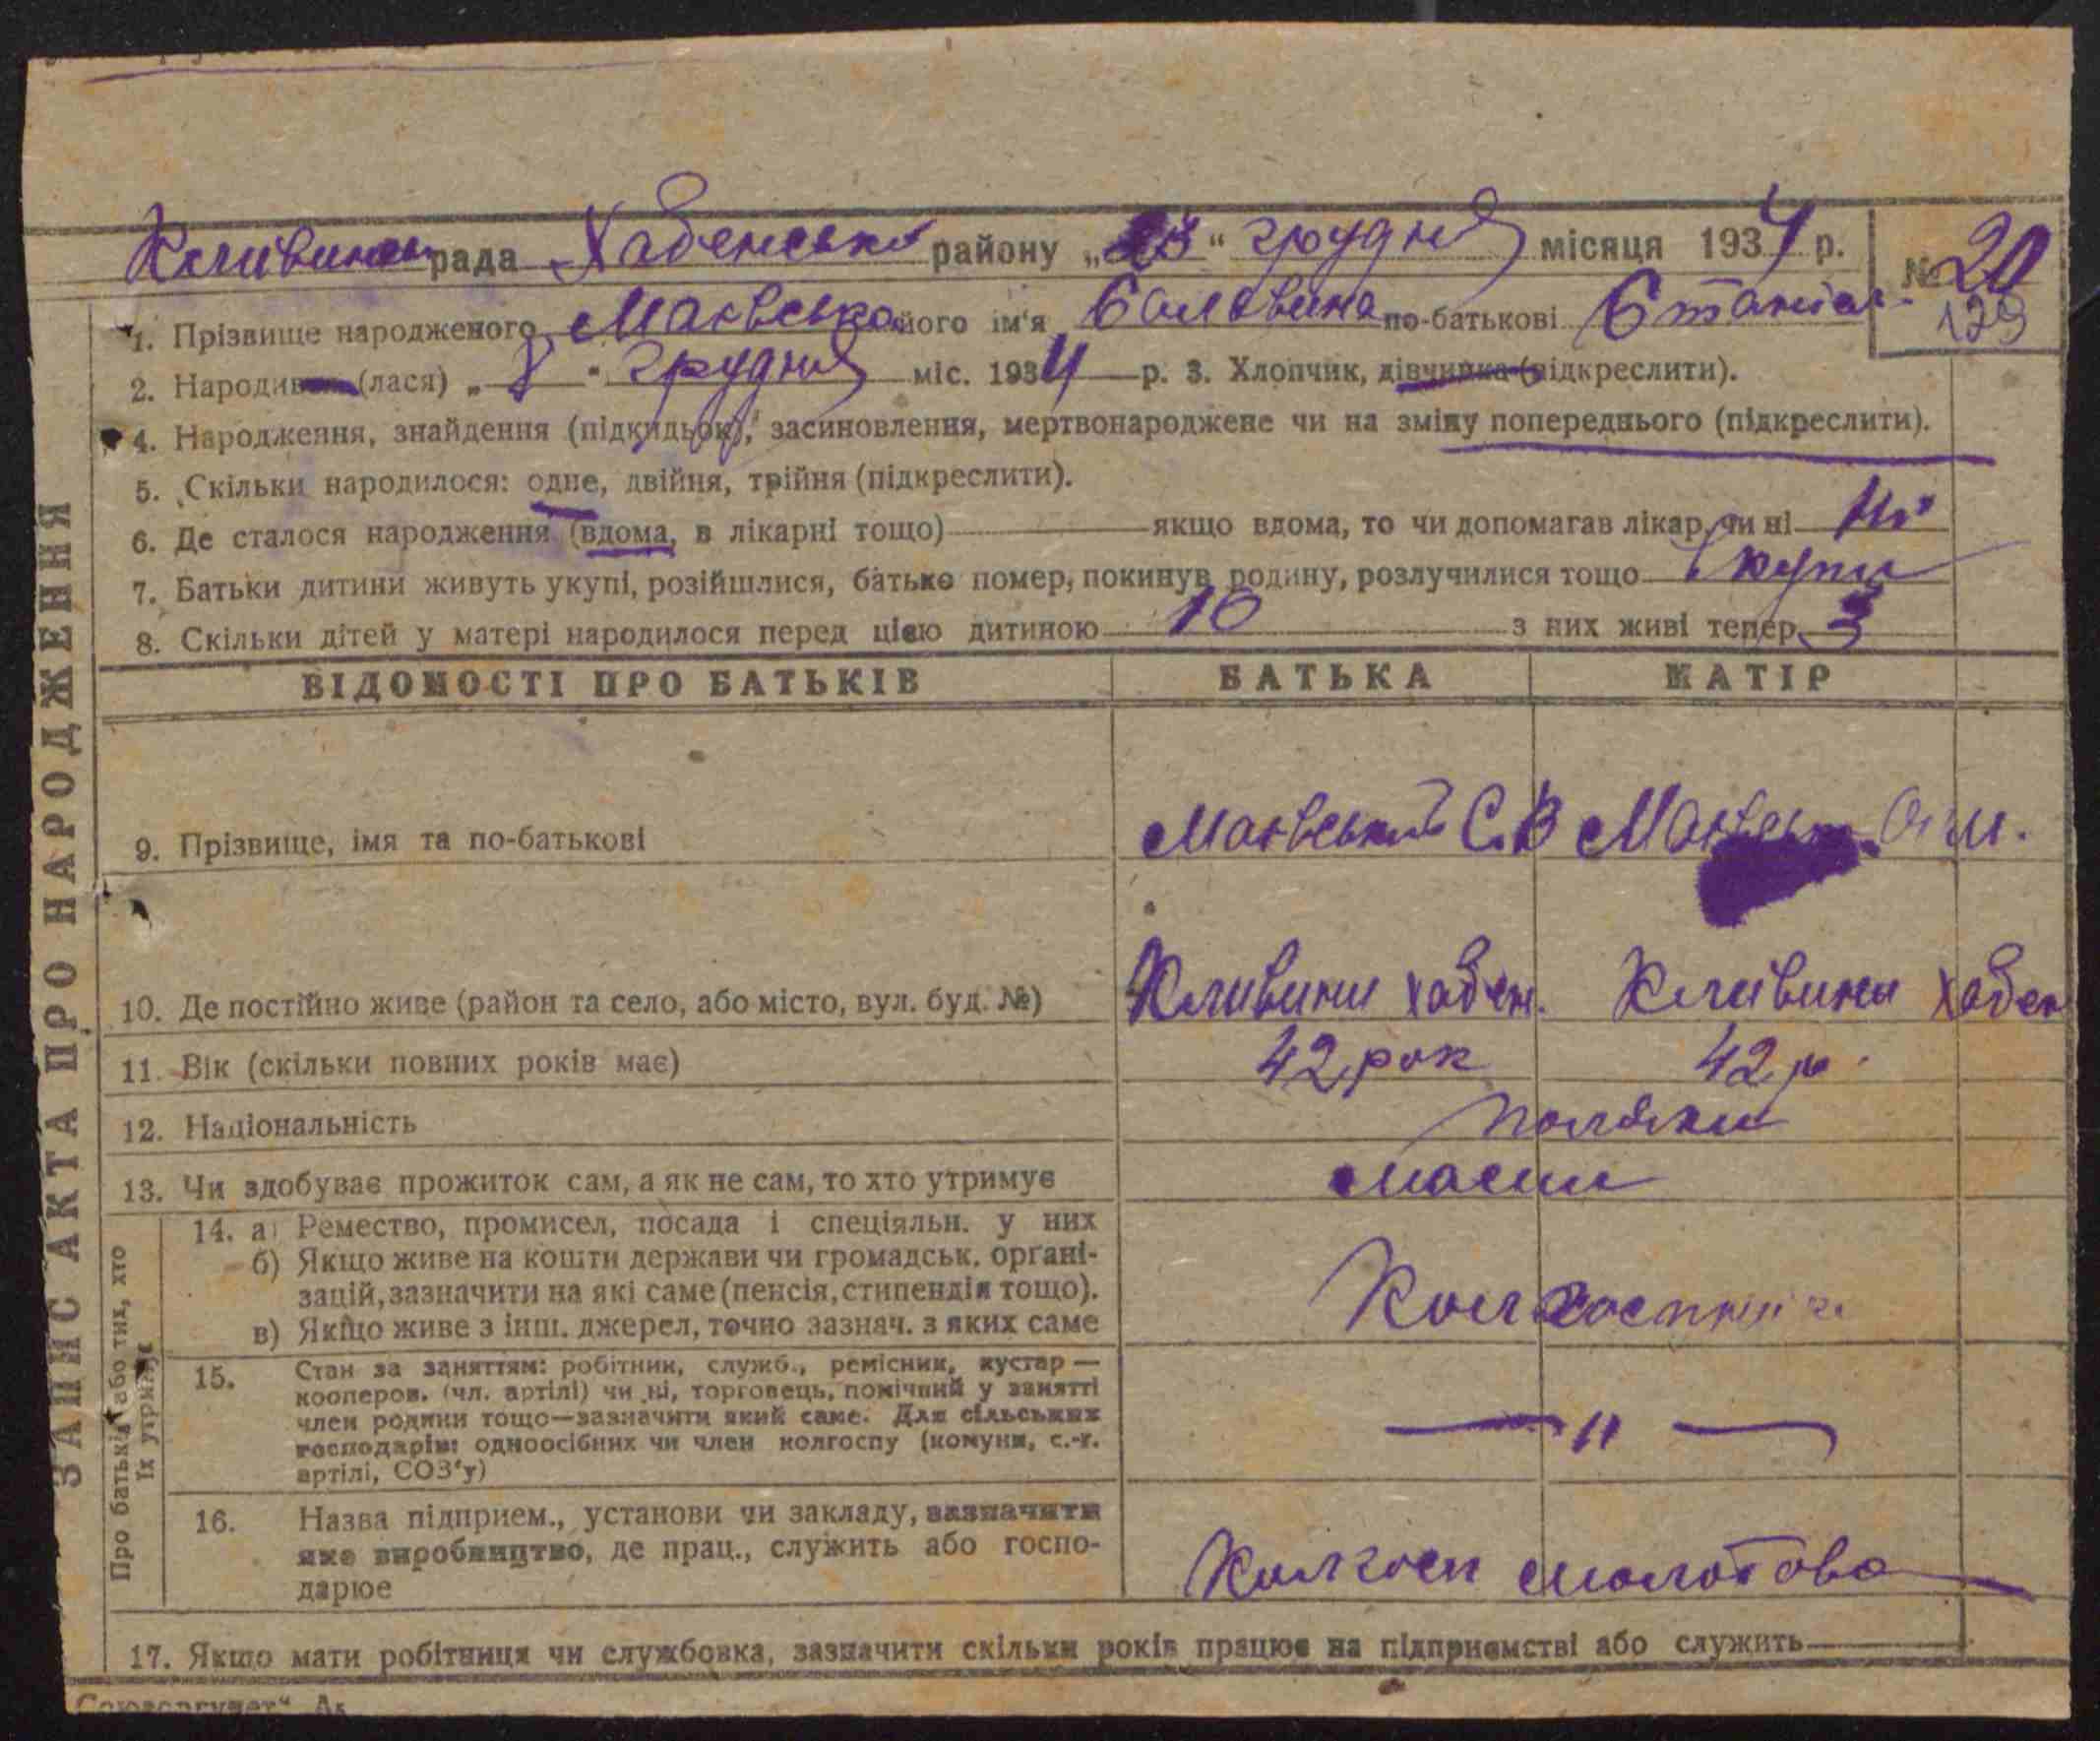 Кливинськ рада Хабенська району „28“ грудня місяця 1934 р. № 20
129
1. Прізвище народженого Маєвська його ім'я по-батькові Станіс
2. Народив (лася) „8“ грудня міс. 1934 р. 3. Хлопчик, дівчинка (підкреслити).
4. Народження, знайдення (підкидьок), засиновлення, мертвонароджене чи на зміну попереднього (підкреслити).
5. Скільки народилося: одне, двійня, трійня (підкреслити).
6. Де сталося народження (вдома, в лікарні тощо) якщо вдома, то чи допомагав лікар, чи ні Ні
7. Батьки дитини живуть укупі, розійшлися, батько помер, покинув родину, розлучилися тощо вкупі
8. Скільки дітей у матері народилося перед цією дитиною 10 з них живі тепер 3
ВІДОМОСТІ ПРО БАТЬКІВ БАТЬКА МАТІР
9. Прізвище, імя та по-батькові Маєвський С. В Маєвська
10. Де постійно живе (район та село, або місто, вул. буд. №) Кливини Хабен. Кливини Хабен
11. Вік (скільки повних років має) 42 рок 42 р.
12. Національність поляки
13. Чи здобуває прожиток сам, а як не сам, то хто утримує
ЗАПИС АКТА ПРО НАРОДЖЕННЯ
Про батьків або тих, хто їх утримує
14. а) Ремество, промисел, посада і спеціяльн. у них
б) Якщо живе на кошти держави чи громадськ. органі-
зацій, зазначити на які саме (пенсія, стипендія тощо).
в) Якщо живе з інш. джерел, точно зазнач. з яких саме
Колгоспники
15. Стан за заняттям: робітник, служб., ремісник, кустар —
кооперов. (чл. артілі) чи ні, торговець, помічний у занятті
член родини тощо—зазначити який саме. Для сільських
господарів: одноосібних чи член колгоспу (комуни, с.-г.
артілі, СОЗ'у)
— " —
16. Назва підприєм., установи чи закладу, зазначити
яке виробництво, де прац., служить або госпо-
дарює
Колгосп Молотова
17. Якщо мати робітниця чи службовка, зазначити скільки років працює на підприємстві або служить